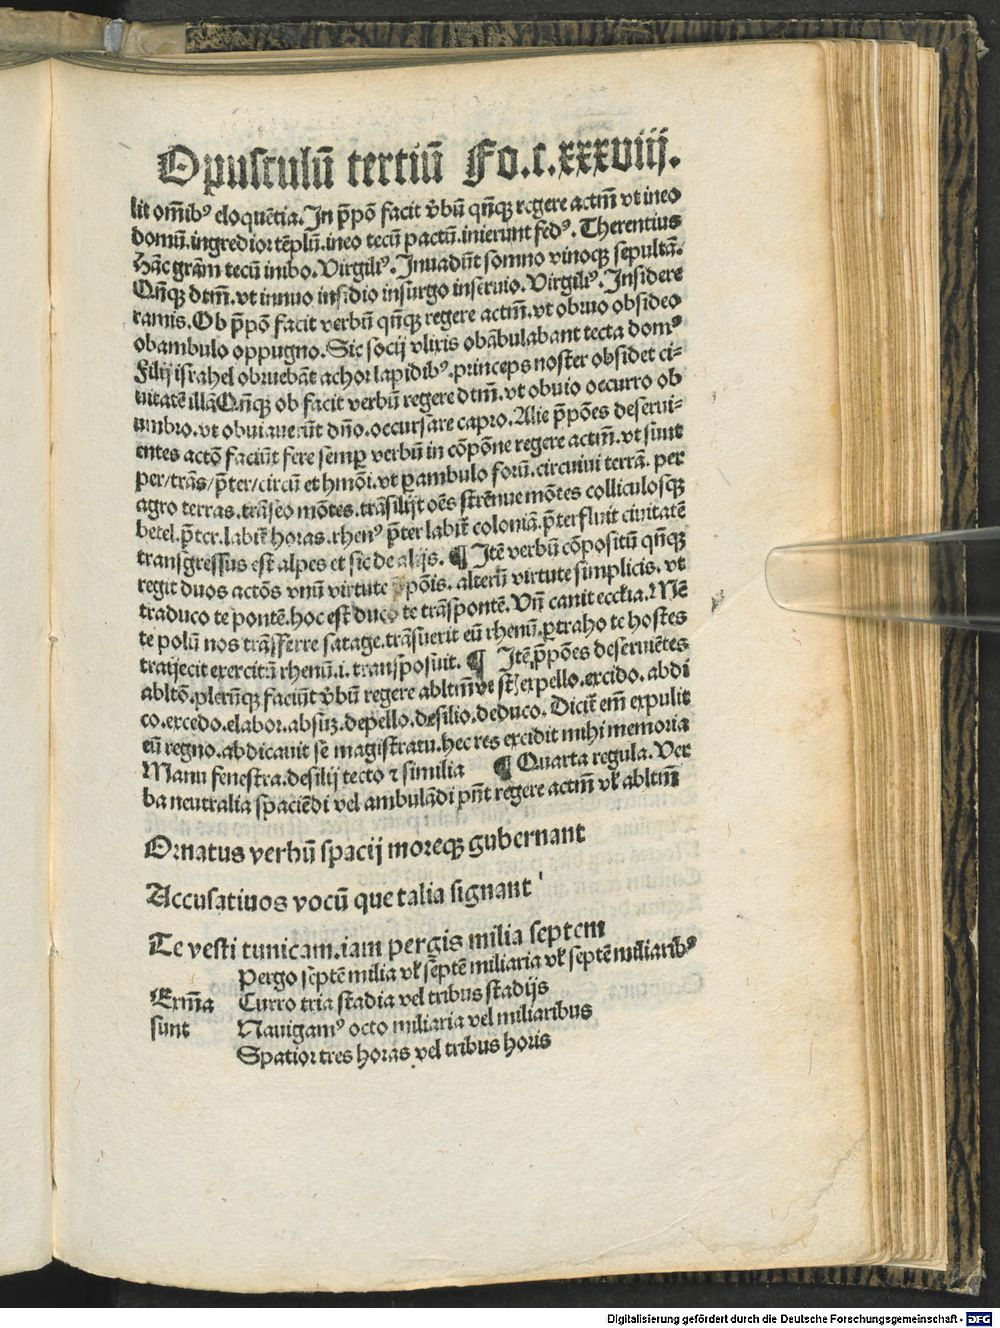 Opusculū tertiū Fo.c.xxxviij.
lit om̄ibꝰ eloquētia. In p̄pō facit v̄bū qn̄qꝫ regere actm̄ vt ineo
domū.ingredior tēplū.ineo tecū pactū.inierunt fedꝰ. Therentius
Hāc grām tecū inibo. Virgiliꝰ. Inuadūt somno vinoqꝫ sepultā.
Qn̄qꝫ dtm̄.vt innuo insidio insurgo inseruio. Virgiliꝰ. Insidere
ramis. Ob p̄pō facit verbū qn̄qꝫ regere actm̄.vt obruo obsideo
obambulo oppugno. Sic socij vlixis obābulabant tecta domꝰ
Filij israhel obruebāt achor lapidibꝰ.princeps noster obsidet ci-
uitatē illā Qn̄qꝫ ob facit verbū regere dtm̄.vt obuio occurro ob
umbro.vt obuiauerūt dn̄o.occursare capro. Alie p̄pōes deserui-
entes actō faciūt fere semꝑ verbū in cōpōne regere actm̄.vt sunt
per/trās/p̄ter/circū et hmōi.vt ꝑambulo forū.circuiui terrā. per
agro terras.trāseo mōtes.trāsilijt oēs strēnue mōtes colliculosqꝫ
betel.p̄ter.labit̄ horas.rhenꝰ p̄ter labit̄ coloniā.p̄terfluit ciuitatē
transgressus est alpes et sic de alijs. ¶ Itē verbū cōpositū qn̄qꝫ
regit duos actōs vnū virtute p̄pōis. alterū virtute simplicis. vt
traduco te pontē.hoc est duco te trās pontē. Vn̄ canit ecclia. Mē
te polū nos trāsferre satage.trāsuerit eū rhenū.ꝑtraho te hostes
traijecit exercitū rhenū.i. transposuit. ¶ Itē p̄pōes deseruiētes
abltō.plerūqꝫ faciūt v̄bū regere abltm̄ vt st̄ expello.excido. abdi
co.excedo.elabor.absūꝫ.depello.desilio.deduco. Dicit̄ em̄ expulit
eū regno.abdicauit se magistratu.hec res excidit mihi memoria
Manu fenestra.desilij tecto ⁊ similia ¶ Quarta regula. Ver
ba neutralia spaciēdi vel ambulādi pn̄t regere actm̄ vl̄ abltm̄
Ornatus verbū spacij moreqꝫ gubernant
Accusatiuos vocū que talia signant
Te vesti tunicam.iam pergis milia septem
Pergo septē milia vl̄ septē miliaria vl̄ septē miliaribꝰ
Exm̄a Curro tria stadia vel tribus stadijs
sunt Nauigamꝰ octo miliaria vel miliaribus
Spatior tres horas vel tribus horis
Digitalisierung gefördert durch die Deutsche Forschungsgemeinschaft - DFG